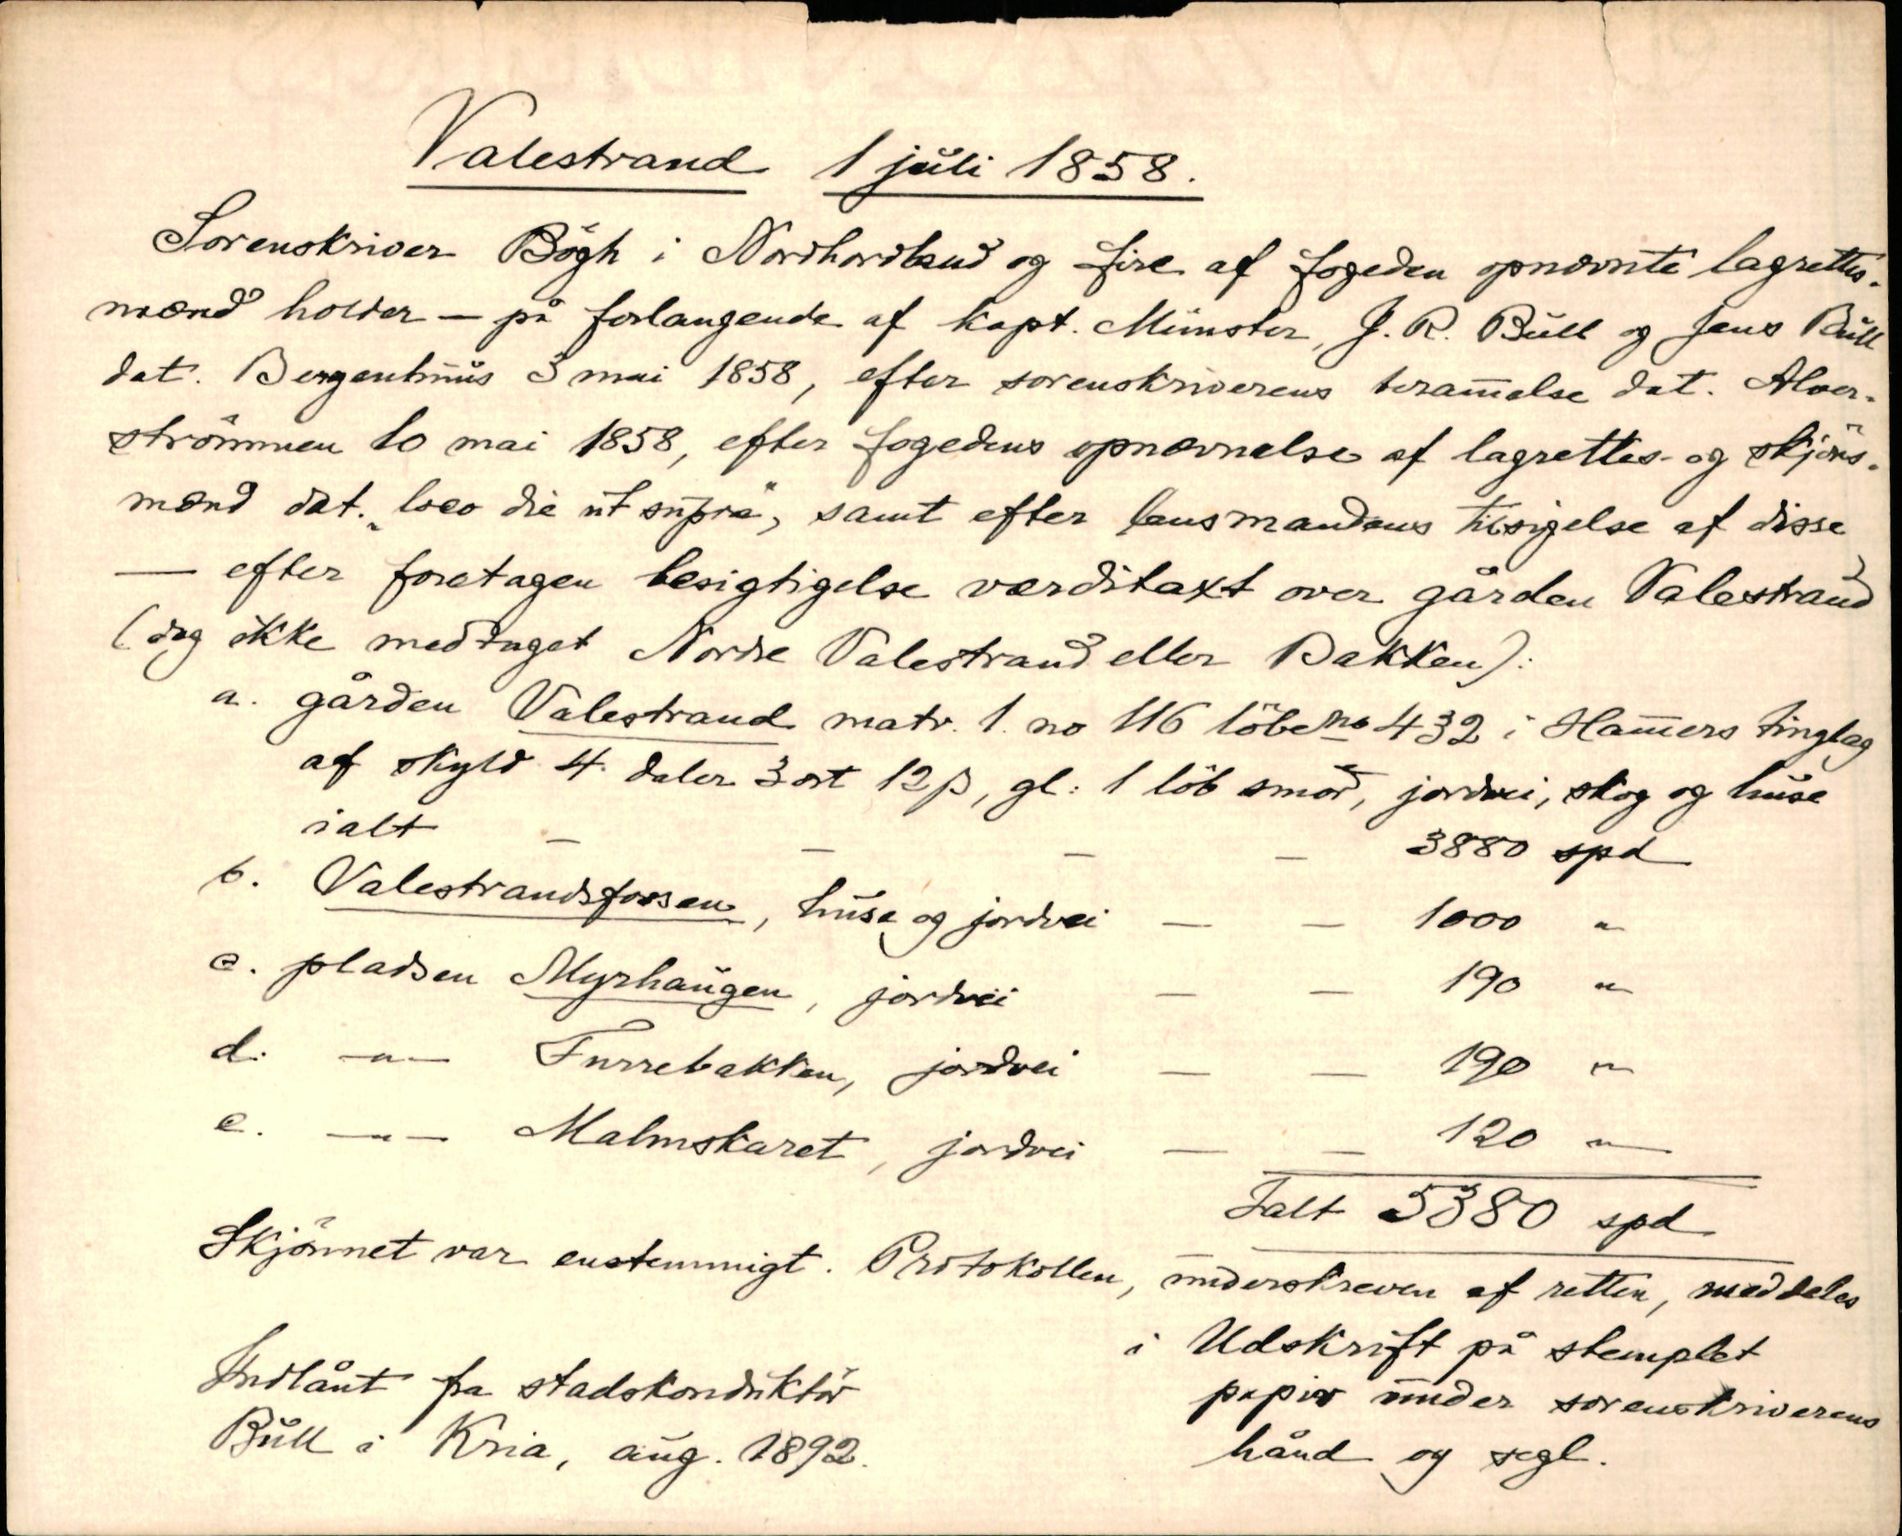 Valestrand 1 juli 1858.
Sorenskriver Bögh i Nordhordland og fire af fogeden opnævnte lagrettes-
mænd holder — på forlangende af kapt. Münster, J. R. Bull og Jens Bull
dat. Bergenhuus 3 mai 1858, efter sorenskriverens beram̅else dat. Alver-
strömmen 10 mai 1858, efter fogedens opnævnelse af lagrettes- og skjöns-
mænd dat. „loco die ut supra“, samt efter lensmandens tilsigelse af disse
— efter foretagen besigtigelse værditaxt over gården Valestrand
(dog ikke medtaget Nordre Valestrand eller Bakken):
a. gården Valestrand matr. l. no 116 löbeno 432 i Ham̅ers tinglag
af skyld 4 daler 3 ort 12 β, gl: 1 löb smör, jordvei, skog og huse
ialt — — — — 3880 spd
b. Valestrandsfossen, huse og jordvei — — 1000 "
c. pladsen Myrhaugen, jordvei — — 190 "
d. —"— Furrebakken, jordvei — — 190 "
e. —"— Malmskaret, jordvei — — 120 "
Ialt 5380 spd
Skjönnet var enstemmigt. Protokollen, underskreven af retten, meddeles
i Udskrift på stemplet
papir under sorenskriverens
hånd og segl.
Indlånt fra stadskonduktör
Bull i Kria, aug. 1892.